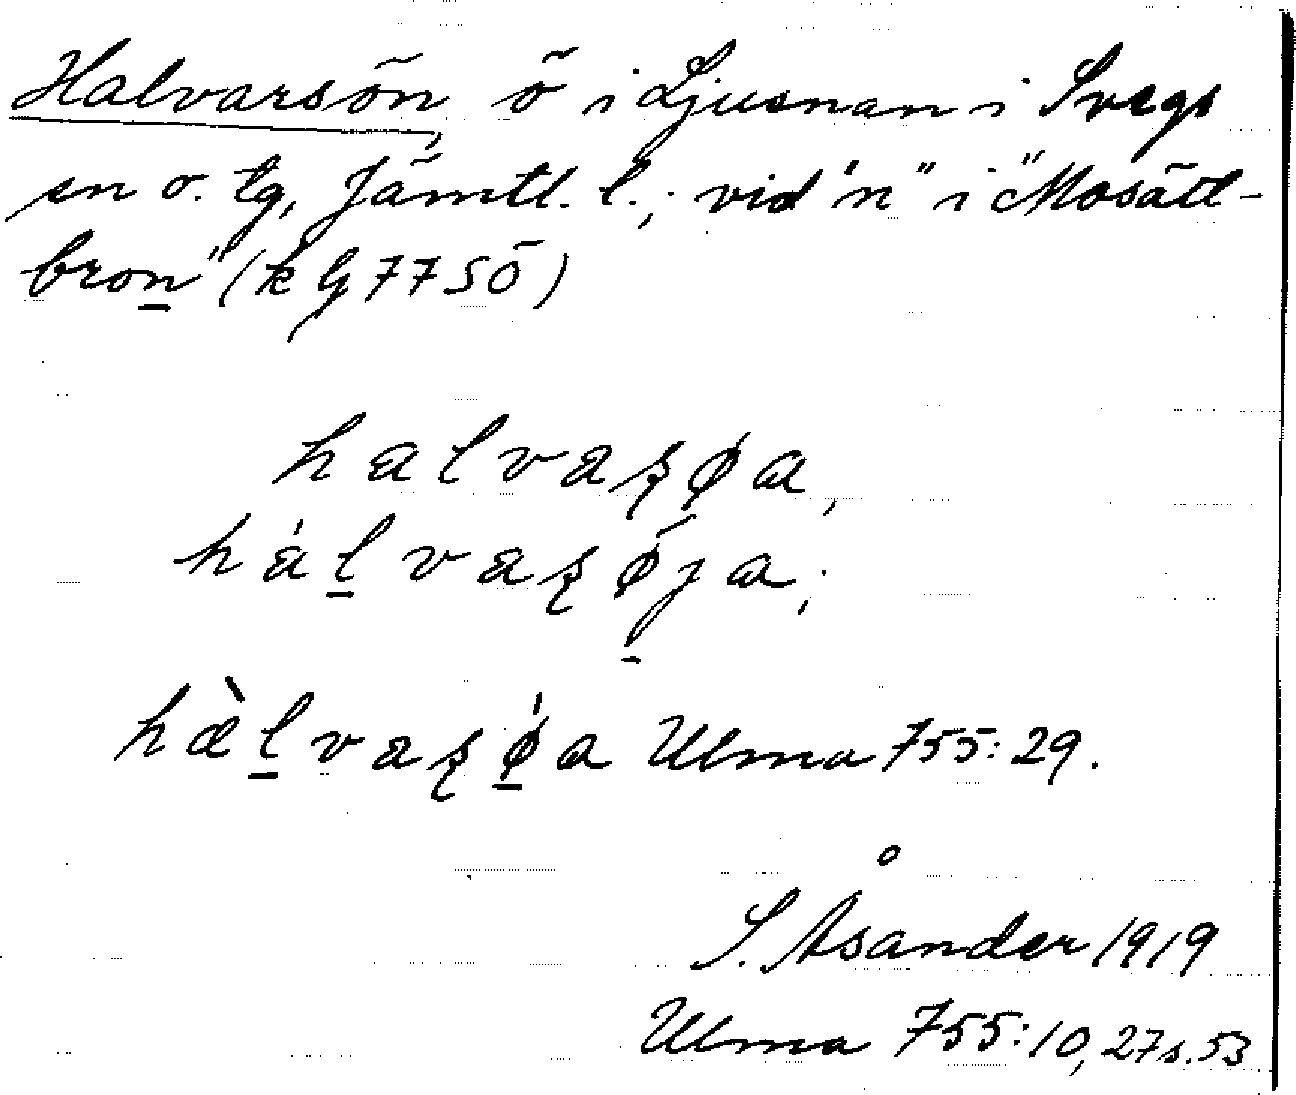 Halvarsön, ö i Ljusnan i Svegs
sn o. tg, Jämtl. l.; vid "n" i "Mosätt-
bron" (k G 7750)
halvaʂøa,
háḻvaʂø̄ja;
hàḻvaʂǿ̱a Ulma 755:29.
S. Åsander 1919
Ulma 755:10, 27 s. 53